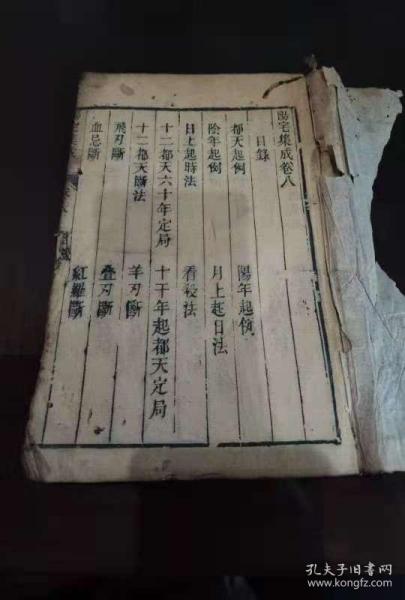 陽宅集成卷八
目錄
都天起例 陽年起例
陰年起例 月上起日法
日上起時法 看殺法
十二都天六十年定局 十干年起都天定局
十二都天斷法 羊刃斷
飛刃斷 叠刃斷
血忌斷 紅羅斷
孔夫子旧书网
http://www.kongfz.com/